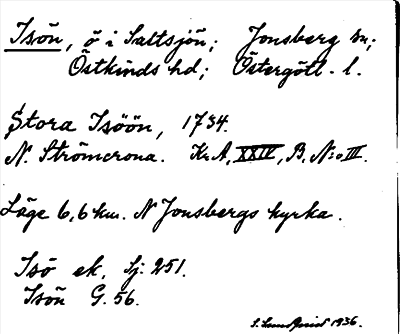 Isön, ö i Saltsjön; Jonsberg sn;
Östkinds hd; Östergötl. l.
Stora Isöön, 1734.
N. Strömcrona. Kr. A, XXIV, B, N:o III.
Läge 6,6 km. N Jonsbergs kyrka.
Isö ek. Sj: 251.
Isön G. 56.
S. Sundqvist 1936.